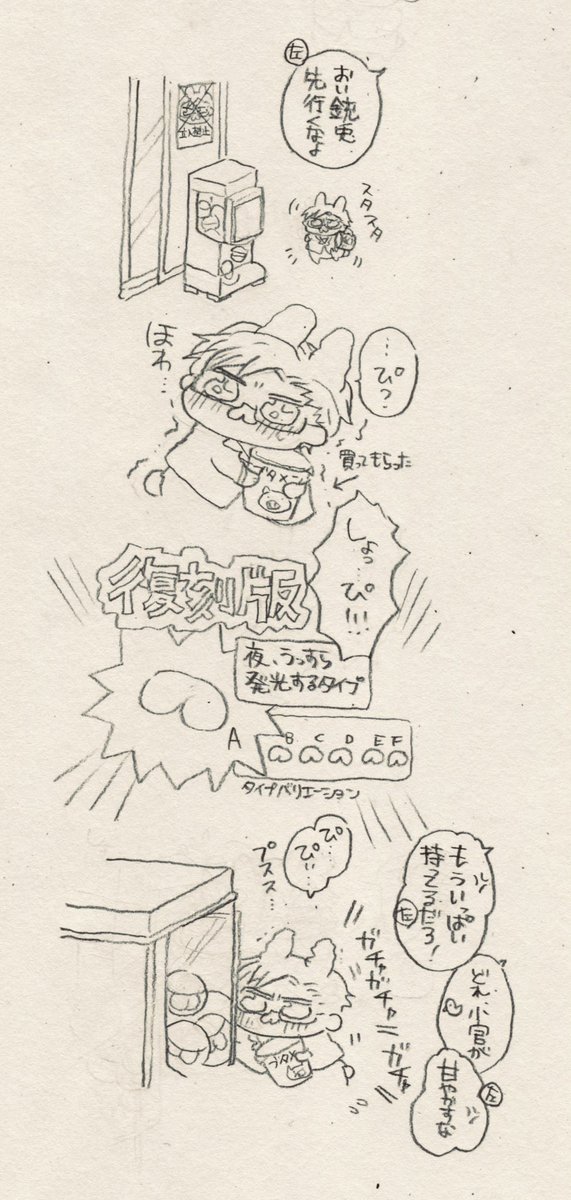 左
おい銃兎
先行くなよ
立入禁止
スタスタ
…ぴ?
ほわ…
買ってもらった
ブタメン
しょっ…ぴ!!!
復刻版
夜、うっすら
発光するタイプ
A
B C D E F
タイプバリエーション
ぴ…
ぴぃ…
プススス…
もういっぱい
持ってるだろ!
左
ガチャガチャ
ガチャ
ブタメ
どれ、小官が
甘やかすな
左